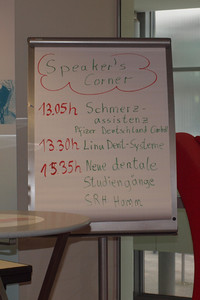 Speaker's
Corner
13.05h Schmerz-
assistenz
Pfizer Deutschland GmbH
13.30h Lina Dent-Systeme
15.35h Neue dentale
Studiengänge
SRH Hamm